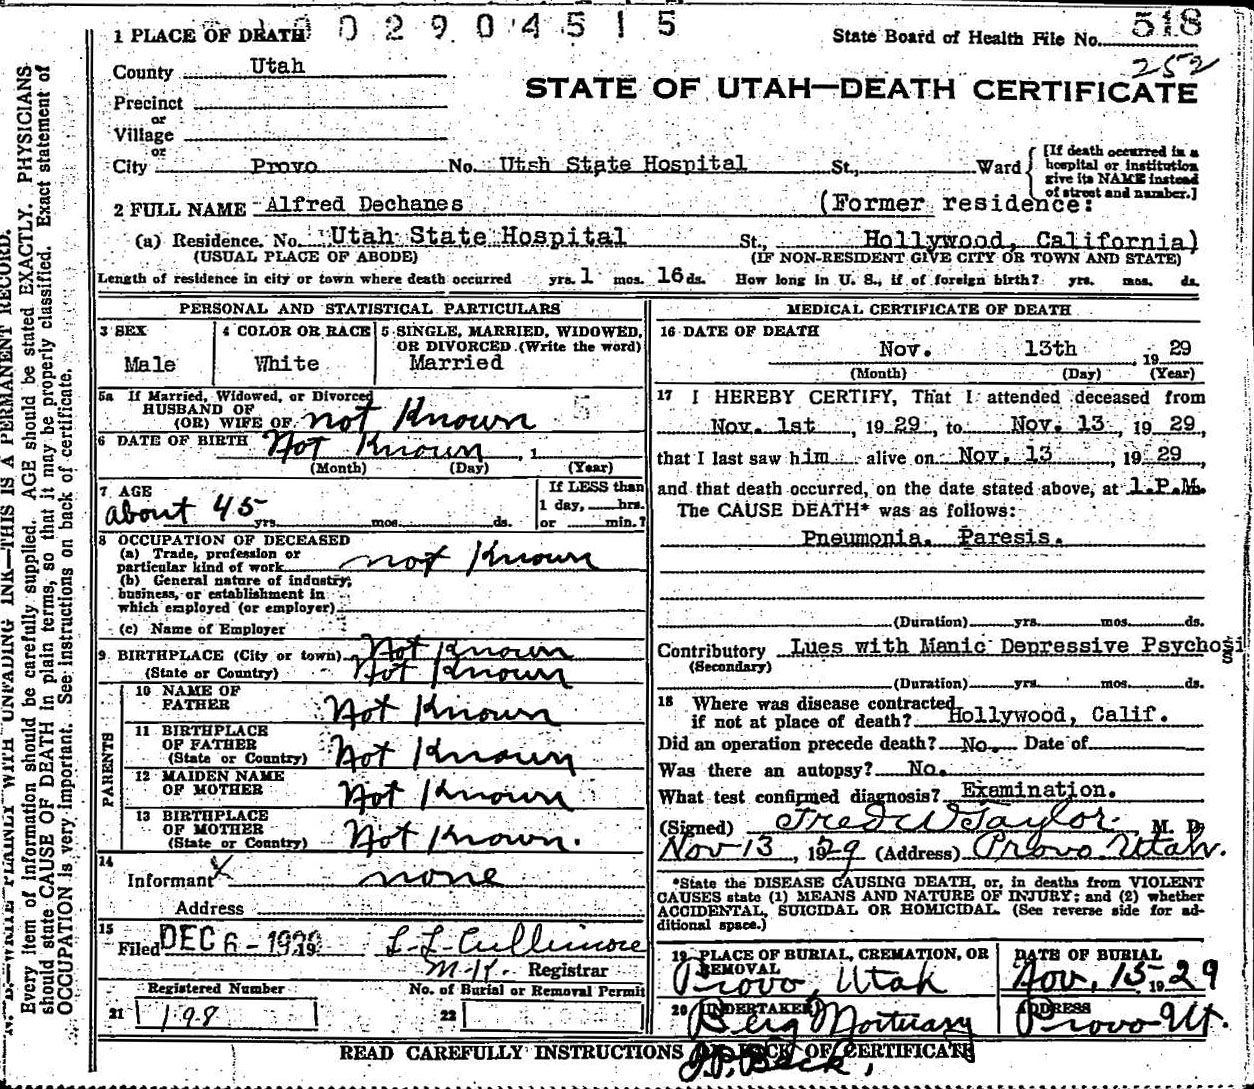 1 PLACE OF DEATH 0 0 2 9 0 4 5 1 5 State Board of Health File No. 518
252
STATE OF UTAH—DEATH CERTIFICATE
County Utah
Precinct
or
Village
or
City Provo No. Utsh State Hospital St., Ward
[If death occurred in a
hospital or institution
give its NAME instead
of street and number.]
2 FULL NAME Alfred Dechanes (Former residence:
(a) Residence. No. Utah State Hospital St., Hollywood, California)
(USUAL PLACE OF ABODE) (IF NON-RESIDENT GIVE CITY OR TOWN AND STATE)
Length of residence in city or town where death occurred yrs. 1 mos. 16 ds. How long in U. S., if of foreign birth? yrs. mos. ds.
PERSONAL AND STATISTICAL PARTICULARS
3 SEX
Male
4 COLOR OR RACE
White
5 SINGLE, MARRIED, WIDOWED,
OR DIVORCED (Write the word)
Married
5a If Married, Widowed, or Divorced
HUSBAND OF
(OR) WIFE OF not Known 5
6 DATE OF BIRTH Not Known , 1
(Month) (Day) (Year)
7 AGE
about 45 yrs. mos. ds.
If LESS than
1 day, hrs.
or min.?
8 OCCUPATION OF DECEASED
(a) Trade, profession or
particular kind of work not Known
(b) General nature of industry,
business, or establishment in
which employed (or employer)
(c) Name of Employer
9 BIRTHPLACE (City or town) Not Known
(State or Country) Not Known
PARENTS
10 NAME OF
FATHER Not Known
11 BIRTHPLACE
OF FATHER
(State or Country) Not Known
12 MAIDEN NAME
OF MOTHER Not Known
13 BIRTHPLACE
OF MOTHER
(State or Country) Not Known.
14
Informant X none
Address
15
Filed DEC 6 - 1929 19 L-L-Cullimore
M-K. Registrar
Registered Number No. of Burial or Removal Permit
21 198 22
MEDICAL CERTIFICATE OF DEATH
16 DATE OF DEATH
Nov. 13th , 19 29
(Month) (Day) (Year)
17 I HEREBY CERTIFY, That I attended deceased from
Nov. 1st , 19 29, to Nov. 13, 19 29,
that I last saw him alive on Nov. 13 , 19 29
and that death occurred, on the date stated above, at 1.P.M.
The CAUSE DEATH* was as follows:
Pneumonia. Paresis.
(Duration) yrs. mos. ds.
Contributory Lues with Manic Depressive Psychosis
(Secondary)
(Duration) yrs. mos. ds.
18 Where was disease contracted
if not at place of death? Hollywood, Calif.
Did an operation precede death? No. Date of
Was there an autopsy? No.
What test confirmed diagnosis? Examination.
(Signed) Fred W Taylor. M. D.
Nov 13, 1929 (Address) Provo Utah.
*State the DISEASE CAUSING DEATH, or, in deaths from VIOLENT
CAUSES state (1) MEANS AND NATURE OF INJURY; and (2) whether
ACCIDENTAL, SUICIDAL OR HOMICIDAL. (See reverse side for ad-
ditional space.)
19 PLACE OF BURIAL, CREMATION, OR
REMOVAL
Provo, Utah
DATE OF BURIAL
Nov. 15 1929
20 UNDERTAKER
Berg Mortuary
J.P. Beck,
ADDRESS
Provo Ut.
READ CAREFULLY INSTRUCTIONS ON BACK OF CERTIFICATE
N. B.—WRITE PLAINLY WITH UNFADING INK—THIS IS A PERMANENT RECORD.
Every item of information should be carefully supplied. AGE should be stated EXACTLY. PHYSICIANS
should state CAUSE OF DEATH in plain terms, so that it may be properly classified. Exact statement of
OCCUPATION is very important. See instructions on back of certificate.